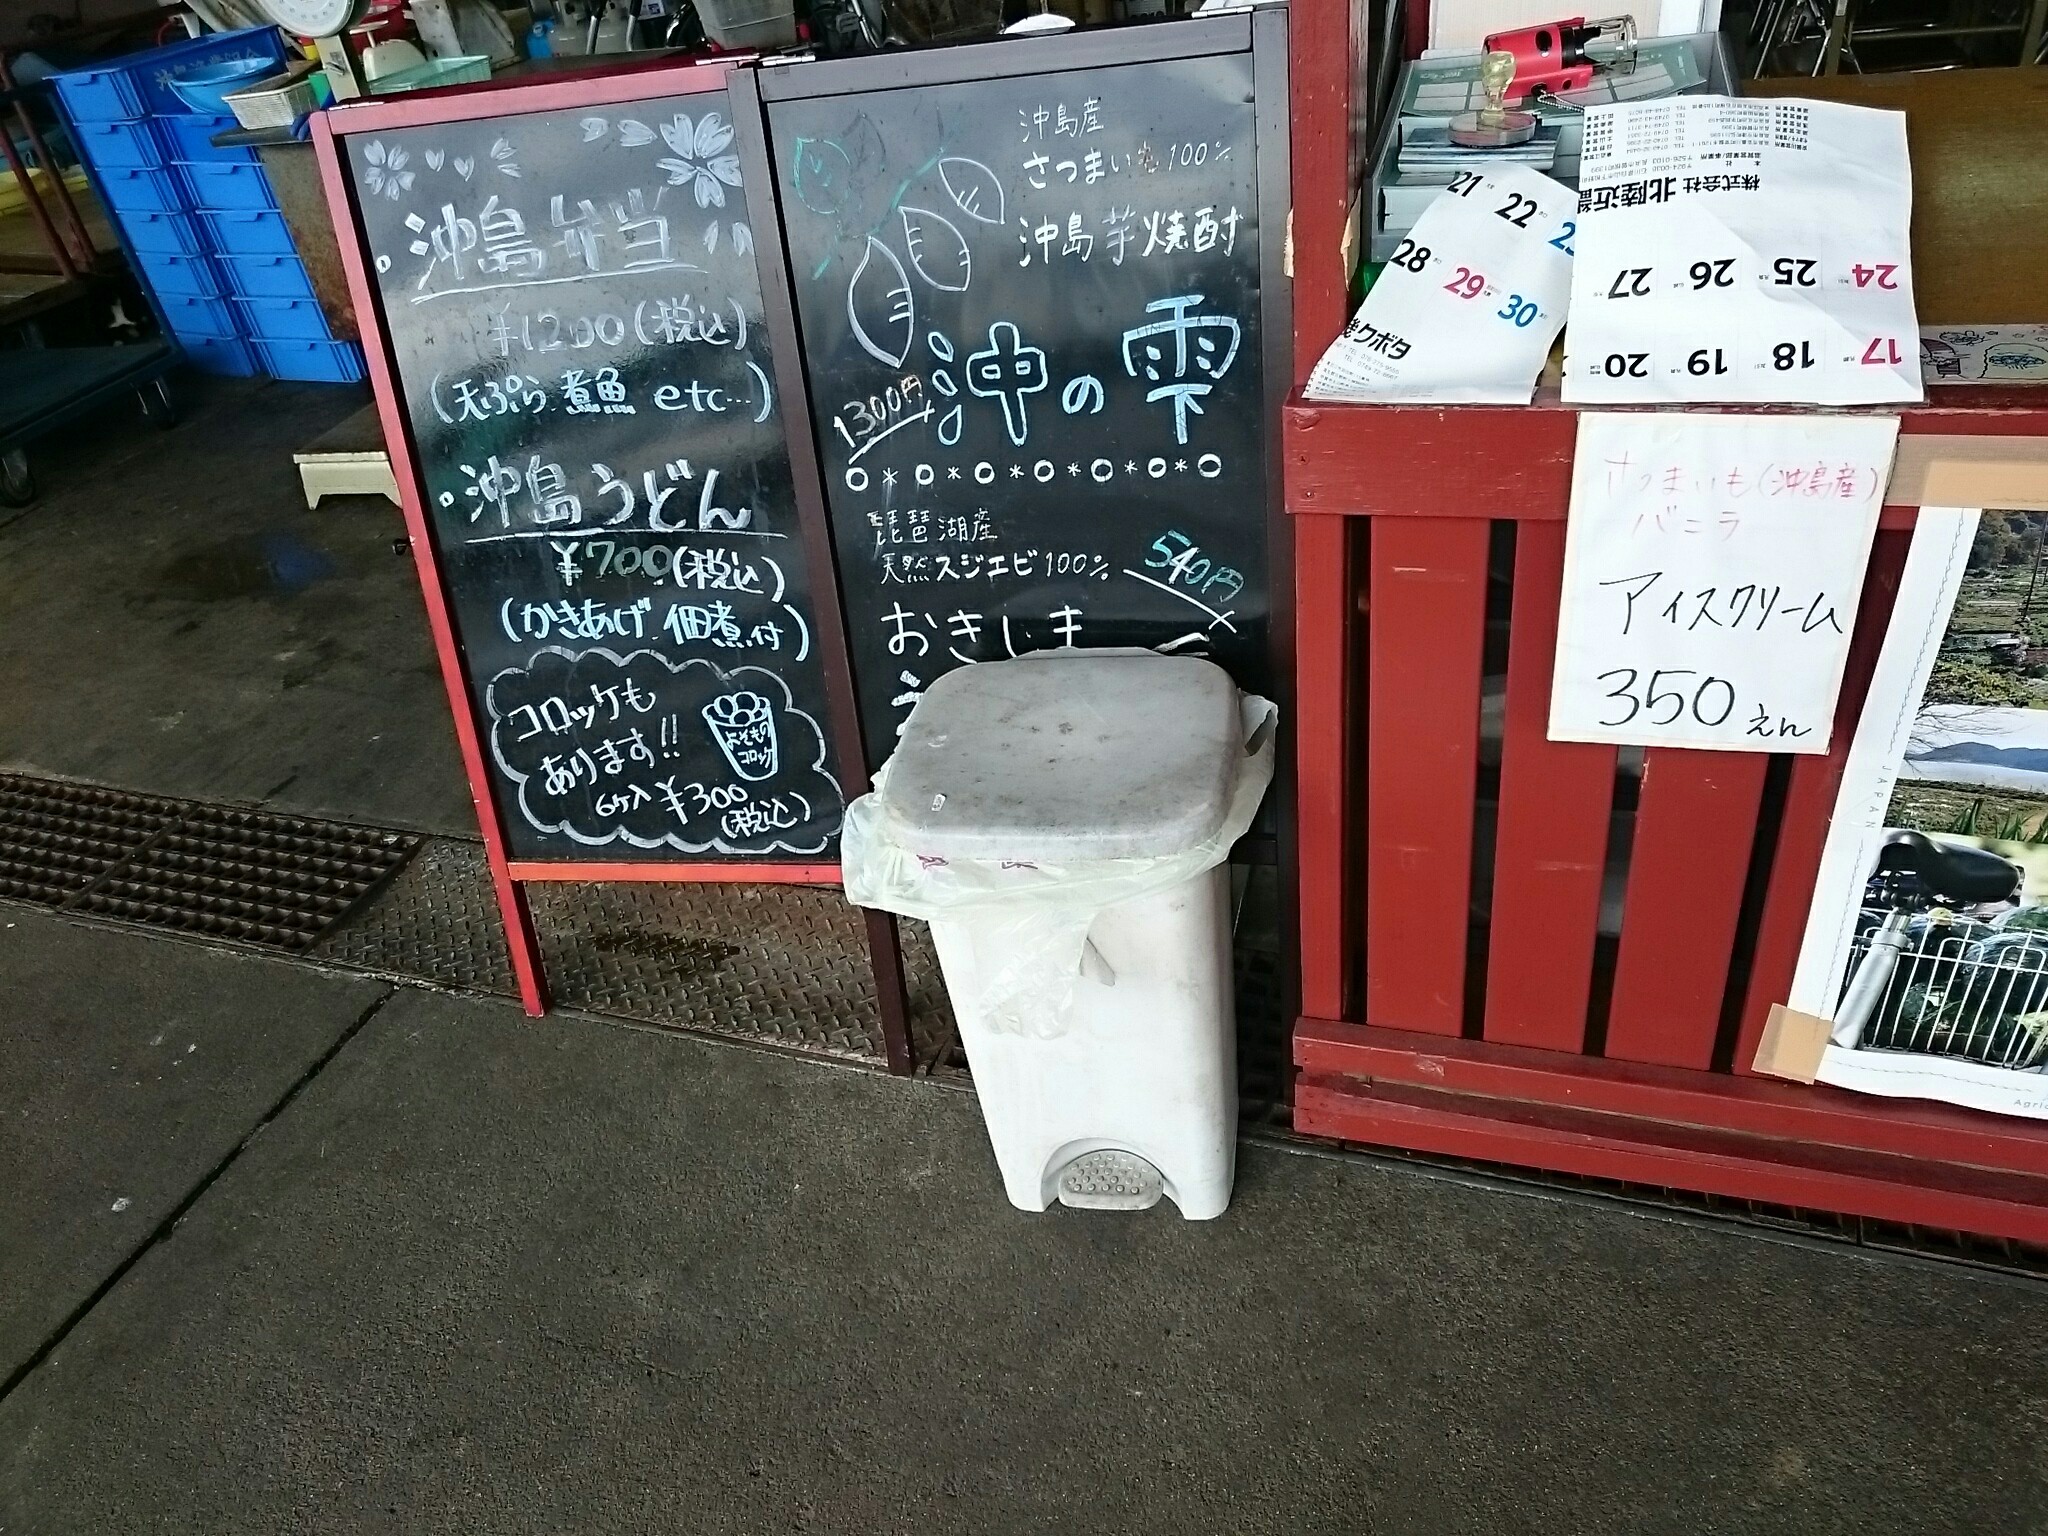 ・沖島弁当
¥1200(税込)
(天ぷら 煮魚 etc…)
・沖島うどん
¥700(税込)
(かきあげ 佃煮付)
コロッケも
あります!!
よそもの
コロッケ
6ヶ入 ¥300
(税込)
沖島産
さつまいも100%
沖島芋焼酎
沖の雫
1300円
琵琶湖産
天然スジエビ100%
540円
おきしま
21 22
28 29 30
クボタ
株式会社 北陸近畿
24 25 26 27
17 18 19 20
さつまいも(沖島産)
バニラ
アイスクリーム
350えん
JAPAN